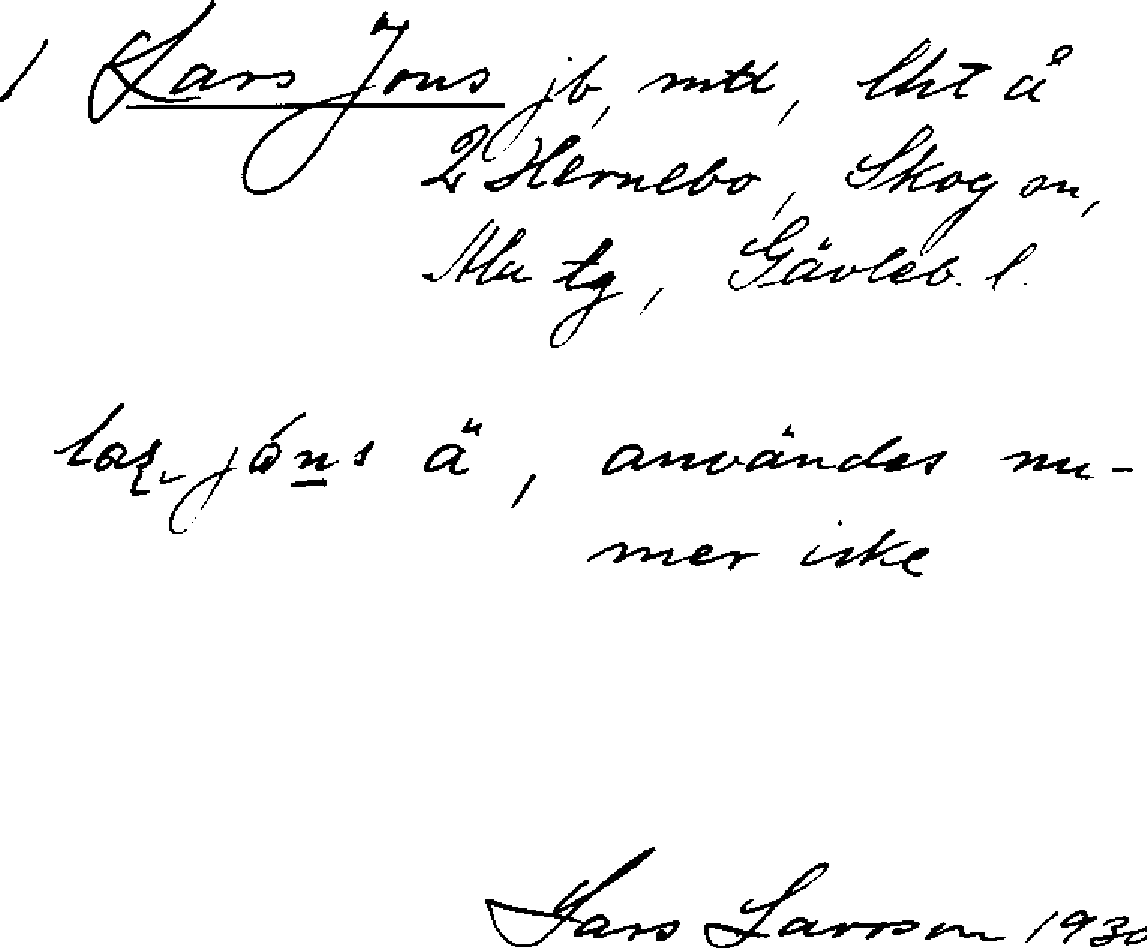 1 Lars Jons jb, mtd, lht å
2 Hernebo, Skog sn,
Ala tg, Gävleb. l.
jóns ä, användes nu-
mer icke
Lars Larsson 1930